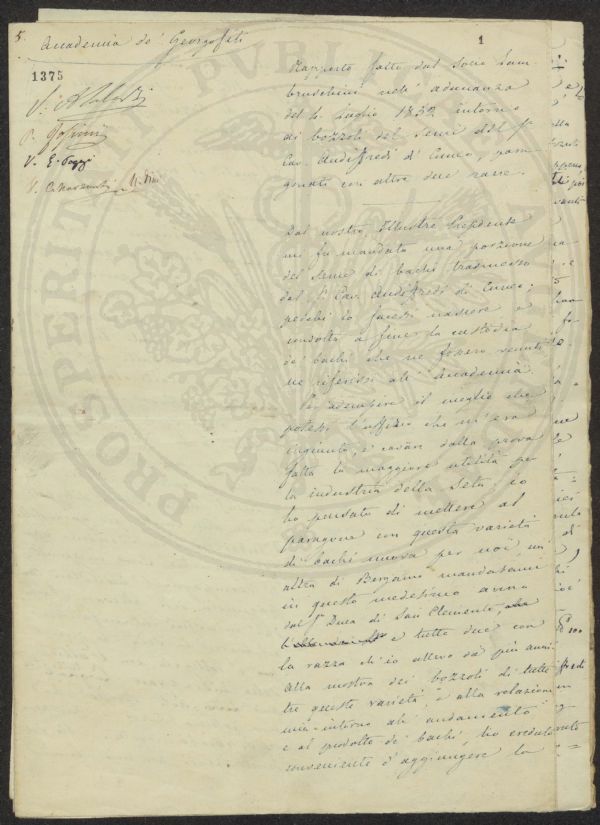 5. Accademia de' Georgofili
1
1375
Rapporto fatto dal Socio Lam
bruschini nell' adunanza
del 4 Luglio 1852 intorno
ai bozzoli del seme del Sr
Cav. Audifredi di Cuneo, para
gonati con altre due razze.
Dal nostro Illustre Presidente
mi fu mandata una porzione
del seme di bachi trasmesso
dal Sr Cav. Audifredi di Cuneo;
perché io facessi nascere e
condotta a fine la custodia
de' bachi che ne fossero venuti
ne riferissi all' Accademia.
Per adempire il meglio che
potessi l'uffizio che m'era
ingiunto, e cavare dalla prova
fatta la maggiore utilità per
la industria della Seta, io
ho pensato di mettere al
paragone con questa varietà
di bachi nuova per noi, un'
altra di Bergamo mandatami
in questo medesimo anno
dal Sr Duca di San Clemente,
e tutte due con
la razza ch'io allevo da più anni.
Alla mostra dei bozzoli di tutte
tre queste varietà, e alla relazione
mia intorno all' andamento
e al prodotto de' bachi, ho creduto
conveniente d'aggiungere la
PROSPERITATI PUBLICAE AUGENDAE